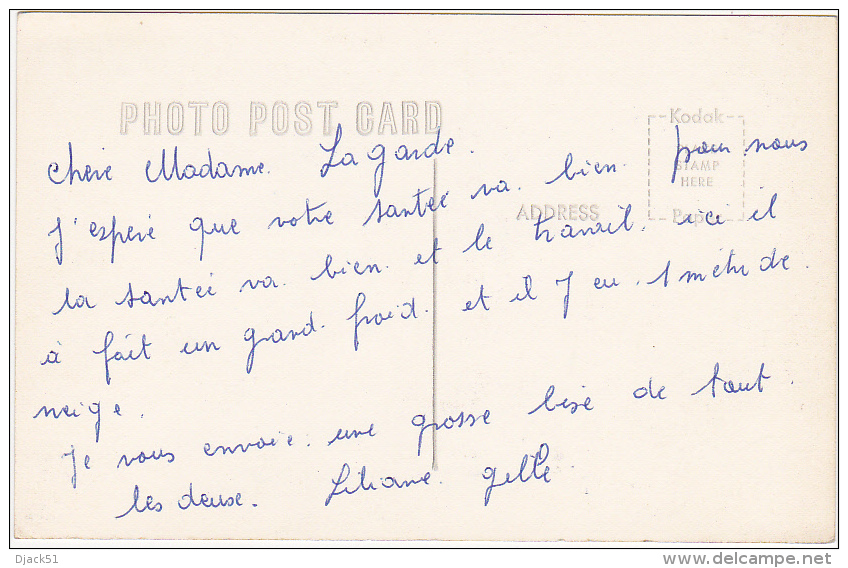 PHOTO POST CARD
Kodak
STAMP
HERE
ADDRESS
Paper
chère Madame. Lagarde.
J'esperé que votre santée va. bien. pour nous
la santée va. bien. et le travail. ici il
à fait un grand. froid. et il J eu. 1 métre de.
neige.
Je vous envoie. une grosse bise de tout.
les deuse. Liliane. gille
Djack51
delcampe.net